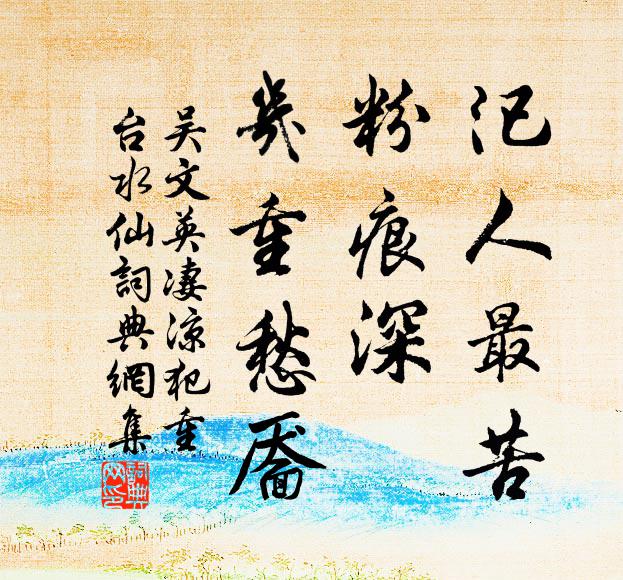 汜人最苦
粉痕深
幾重愁靨
吴文英淒凉犯重
台水仙詞典網集